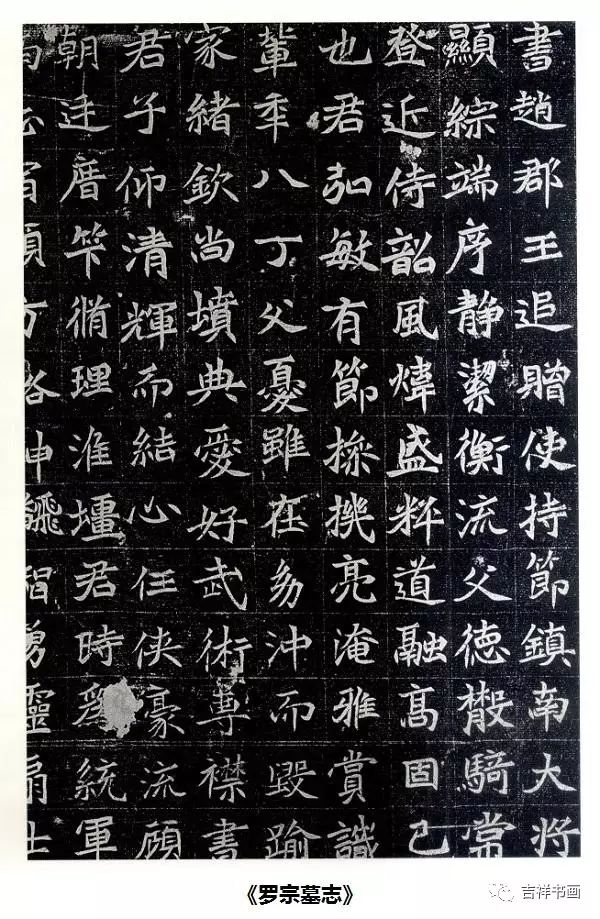 書趙郡王追贈使持節鎮南大將
顯綜端序靜潔衡流父德散騎常
登近侍韶風煒盛粹道融高固已
也君弘敏有節操機亮淹雅賞識
輩年八丁父憂雖在幼沖而毀踰
家緒欽尚墳典愛好武術專襟書
君子仰清輝而結心任俠豪流顧
朝迋厝竿脩理淮壃君時爲統軍
方
《罗宗墓志》
吉祥书画